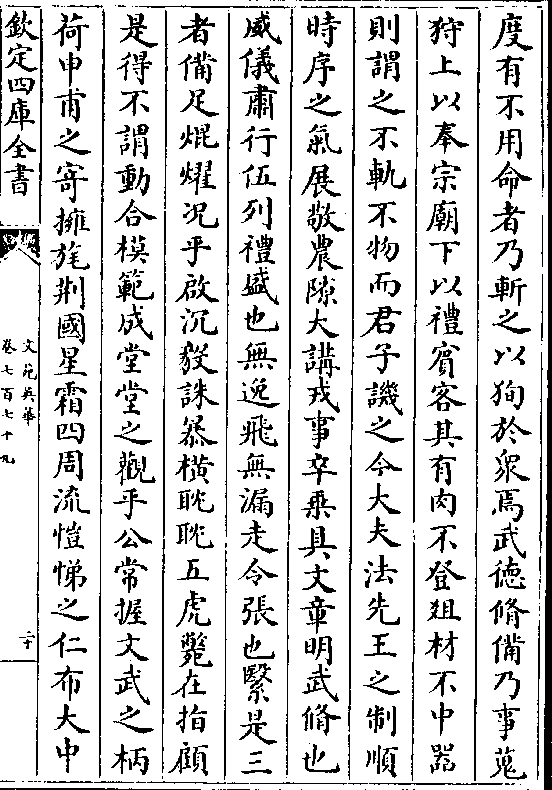 度有不用命者乃斬之以狥於衆焉武德脩備乃事蒐
狩上以奉宗廟下以禮賓客其有肉不登俎材不中器
則謂之不軌不物而君子譏之今大夫法先王之制順
時序之氣展敬農隙大講戎事卒乘具文章明武脩也
威儀肅行伍列禮盛也無逸飛無漏走令張也繄是三
者備足焜燿况乎啟沉毅誅暴橫眈眈五虎斃在指顧
是得不謂動合模範成堂堂之觀乎公常握文武之柄
荷申甫之寄擁旄荆國星霜四周流愷悌之仁布大中
欽定四庫全書
文苑英華
卷七百七十九
二十